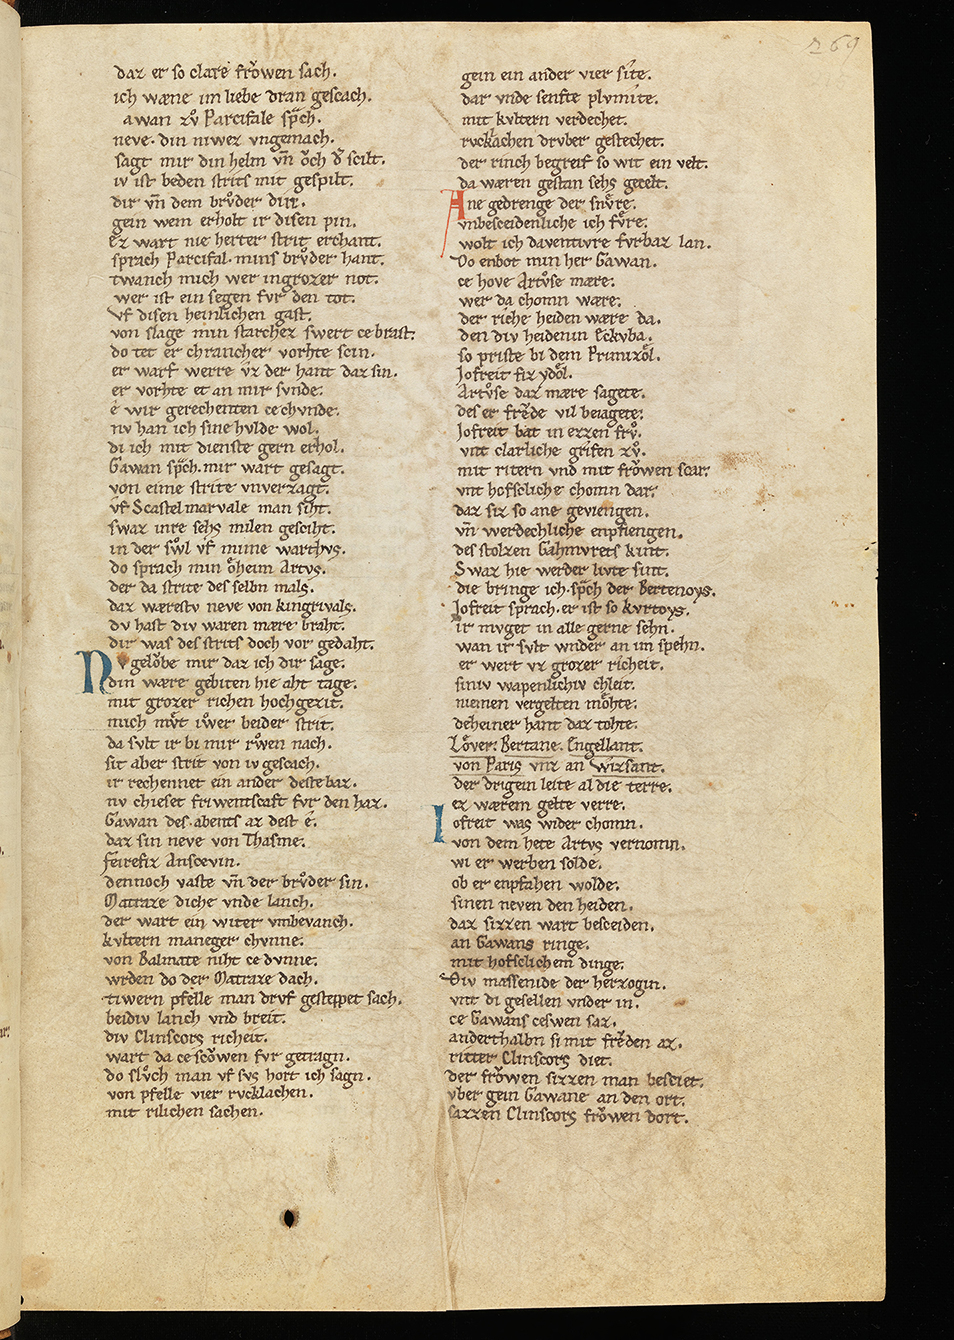 269
daz er so clare frǒwen sach.
ich wæne im liebe dran gescach.
awan zv̊ Parcifale sp̄ch.
neve. din niwez vngemach.
sagt mir din helm vn̄ ǒch d̄ scilt.
iv ist beden strits mit gespilt.
dir vn̄ dem brv̊der dir.
gein wem erholt ir disen pin.
ez wart nie herter strit erchant.
sprach Parcifal. mins brv̊der hant.
twanch mich wer ingrozer not.
wer ist ein segen fvr den tot.
vf disen heinlichen gast.
von slage min starchez swert ce brast.
do tet er chrancher vorhte scin.
er warf werre v̄z der hant daz sin.
er vorhte et an mir svnde.
ê wir gerechenten ce chvnde.
nv han ich sine hvlde wol.
di ich mit dienste gern erhol.
Gawan sp̄ch. mir wart gesagt.
von eime strite vnverzagt.
vf Scastelmarvale man siht.
swaz inre sehs milen gesciht.
in der sv̊l vf mime warthvs.
do sprach min ǒheim Artvs.
der da strite des selbn mals.
daz wærestv neve von kingrivals.
dv hast div waren mære braht.
dir was des strits doch vor gedaht.
Nv gelǒbe mir daz ich dir sage.
din wære gebiten hie aht tage.
mit grozer richen hochgezit.
mich mv̊t iwer beider strit.
da svlt ir bi mir rv̊wen nach.
sit aber strit von iv gescach.
ir rechennet ein ander deste baz.
nv chieset friwentscaft fvr den haz.
Gawan des abents az dest ê.
daz sin neve von Thasme.
feirefiz Anscevin.
dennoch vaste vn̄ der brv̊der sin.
Matraze diche vnde lanch.
der wart ein witer vmbevanch.
kvltern maneger chvnne.
von Balmate niht ce dvnne.
wrden do der Matraze dach.
tiwern pfelle man drvf gesteppet sach.
beidiv lanch vnd breit.
div Clinscors richeit.
wart da ce scǒwen fvr getragn.
do slv̊ch man vf svs hort ich sagn.
von pfelle vier rvcklachen.
mit rilichen sachen.
gein ein ander vier site.
dar vnde senfte plvmite.
mit kvltern verdechet.
rvcklachen drvber gestechet.
der rinch begreif so wit ein velt.
da wæren gestan sehs gecelt.
Ane gedrenge der snv̊re.
vnbesceidenliche ich fv̊re.
wolt ich daventivre fvrbaz lan.
Do enbot min her Gawan.
ce hove Artv̊se mære.
wer da chomn wære.
der riche heiden wære da.
den div heidenin Eckvba.
so priste bi dem Primizôl.
Jofreit fiz ydôl.
Artv̊se daz mære sagete.
des er frevde vil beiagete.
Jofreit bat in ezzen frv̊.
vnt clarliche grifen zv̊.
mit ritern vnd mit frǒwen scar.
vnt hofscliche chomn dar.
daz siz so ane geviengen.
vn̄ werdechliche enpfiengen.
des stolzen Gahmvrets kint.
Swaz hie werder livte sint.
die bringe ich. sp̄ch der Bertenoys.
Jofreit sprach. er ist so kvrtoys.
ir mvget in alle gerne sehn.
wan ir svlt wnder an im spehn.
er vert vz grozer richeit.
siniv wapenlichiv chleit.
niemen vergelten mǒhte.
deheiner hant daz tohte.
Lǒver. Bertane. Engellant.
von Paris vnz an wizsant.
der drigein leite al die terre.
ez wærem gelte verre.
Iofreit was wider chomn.
von dem hete Artvs vernomn.
wi er werben solde.
ob er enpfahen wolde.
sinen neven den heiden.
daz sizzen wart besceiden.
an Gawans ringe.
mit hofsclichem dinge.
Div massenide der herzogin.
vnt di gesellen vnder in.
ce Gawans ceswen saz.
anderthalbn si mit frevden az.
ritter Clinscors diet.
der frǒwen sizzen man besciet.
vber gein Gawane an den ort.
sazzen Clinscors frǒwen dort.